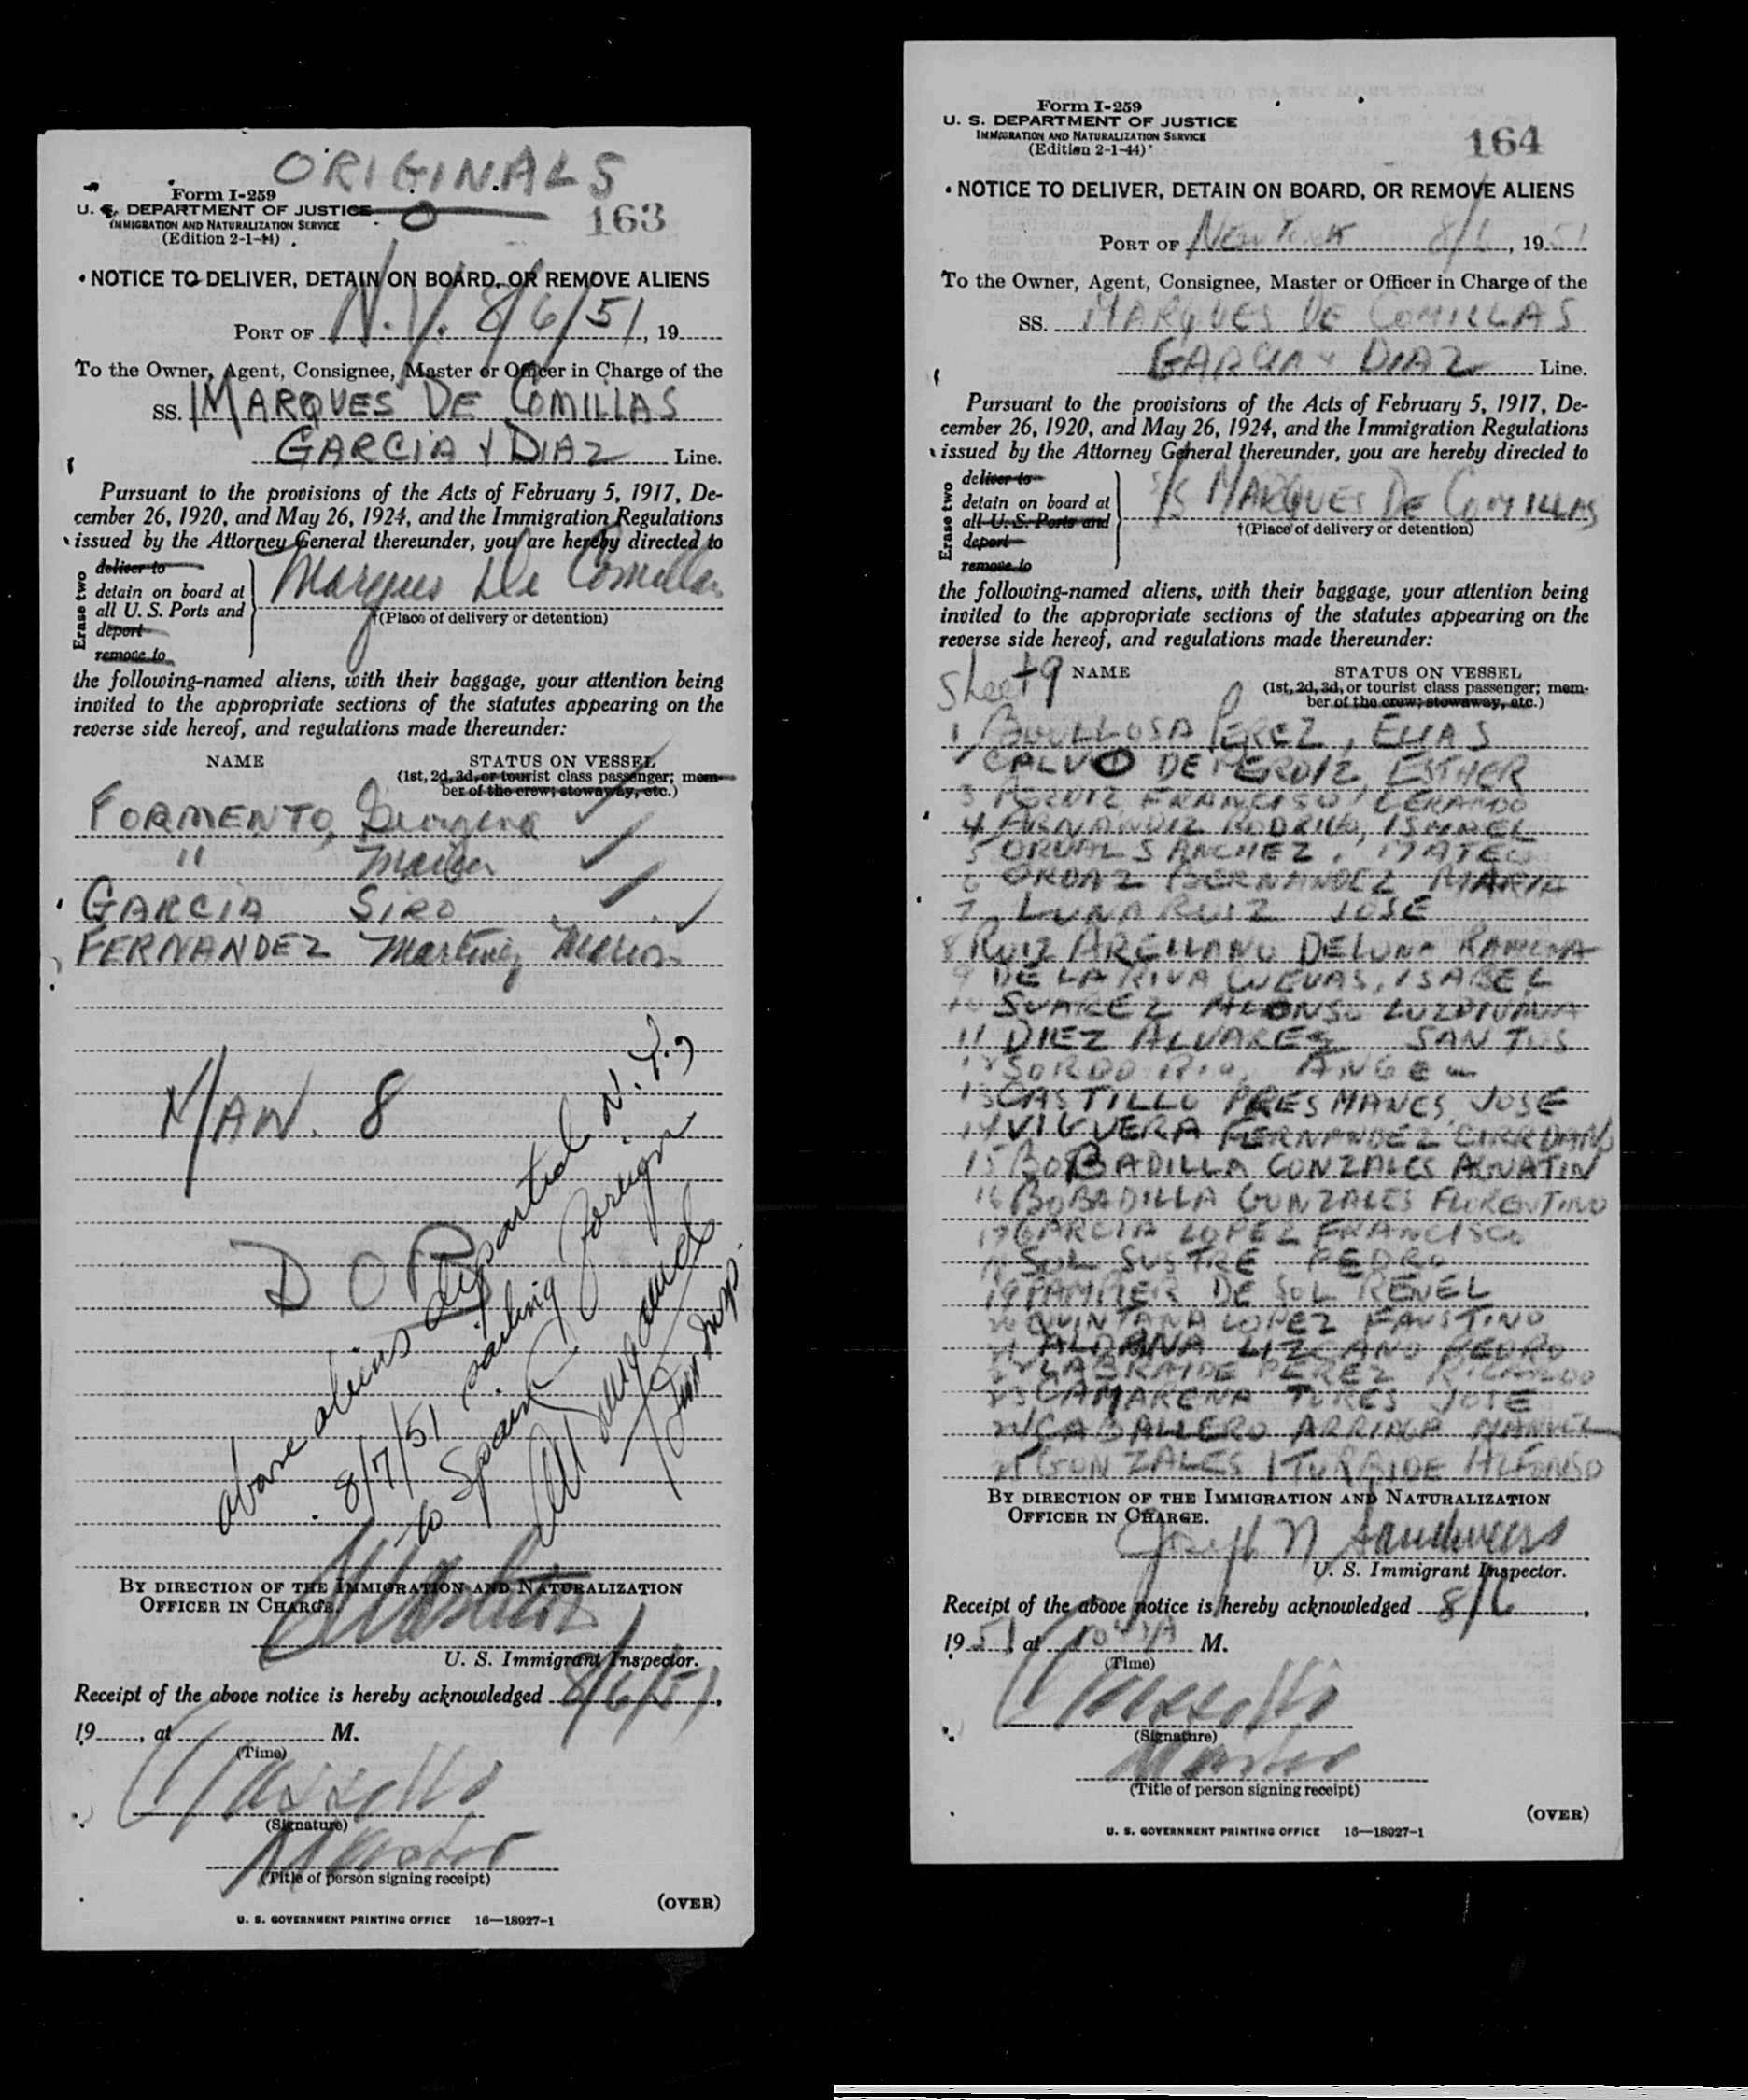 ORIGINALS
Form I-259
U. S. DEPARTMENT OF JUSTICE
IMMIGRATION AND NATURALIZATION SERVICE
(Edition 2-1-44)
163
NOTICE TO DELIVER, DETAIN ON BOARD, OR REMOVE ALIENS
PORT OF N.Y. 8/6/51, 19
To the Owner, Agent, Consignee, Master or Officer in Charge of the
SS. MARQUES DE COMILLAS
GARCIA Y DIAZ Line.
Pursuant to the provisions of the Acts of February 5, 1917, De-
cember 26, 1920, and May 26, 1924, and the Immigration Regulations
issued by the Attorney General thereunder, you are hereby directed to
Erase two
deliver to
detain on board at
all U. S. Ports and
deport
remove to
Marques De Comillas
†(Place of delivery or detention)
the following-named aliens, with their baggage, your attention being
invited to the appropriate sections of the statutes appearing on the
reverse side hereof, and regulations made thereunder:
NAME STATUS ON VESSEL
(1st, 2d, 3d, or tourist class passenger; mem-
ber of the crew; stowaway, etc.)
FORMENTO,
" Maria
GARCIA SIRO
FERNANDEZ Martinez
MAN. 8
D O B
above aliens departed N.Y.
8/7/51 sailing foreign
to Spain
BY DIRECTION OF THE IMMIGRATION AND NATURALIZATION
OFFICER IN CHARGE.
U. S. Immigrant Inspector.
Receipt of the above notice is hereby acknowledged 8/6/51,
19, at M.
(Time)
(Signature)
Master
(Title of person signing receipt)
(OVER)
U. S. GOVERNMENT PRINTING OFFICE 16—18927-1
Form I-259
U. S. DEPARTMENT OF JUSTICE
IMMIGRATION AND NATURALIZATION SERVICE
(Edition 2-1-44)
164
NOTICE TO DELIVER, DETAIN ON BOARD, OR REMOVE ALIENS
PORT OF New York 8/6, 1951
To the Owner, Agent, Consignee, Master or Officer in Charge of the
SS. MARQUES DE COMILLAS
GARCIA Y DIAZ Line.
Pursuant to the provisions of the Acts of February 5, 1917, De-
cember 26, 1920, and May 26, 1924, and the Immigration Regulations
issued by the Attorney General thereunder, you are hereby directed to
Erase two
deliver to
detain on board at
all U. S. Ports and
deport
remove to
S/S MARQUES DE COMILLAS
†(Place of delivery or detention)
the following-named aliens, with their baggage, your attention being
invited to the appropriate sections of the statutes appearing on the
reverse side hereof, and regulations made thereunder:
Sheet 9 NAME STATUS ON VESSEL
(1st, 2d, 3d, or tourist class passenger; mem-
ber of the crew; stowaway, etc.)
1 BOULLOSA PEREZ, ELIAS
CALVO DE ESTHER
3 FRANCISCO GERARDO
4 ISMAEL
5 SANCHEZ, MATEO
6 ORDAZ BERNANDEZ MARIA
7 LUNA RUIZ JOSE
8 RUIZ ARELLANO DELUNA RAMONA
9 DE LA RIVA CUEVAS, ISABEL
10 SUAREZ ALONSO LUZDIVINA
11 DIEZ ALVAREZ SANTOS
12 SORDO ANGEL
13 CASTILLO PRESMANES JOSE
14 VIGUERA FERNANDEZ
15 BOBADILLA GONZALES
16 BOBADILLA GONZALES FLORENTINO
17 GARCIA LOPEZ FRANCISCO
18 SOL SUSTRE PEDRO
19 DE SOL RENEL
20 QUINTANA LOPEZ FAUSTINO
21 ALDANA LIZCANO PEDRO
22 PEREZ RICARDO
23 CAMARENA TORES JOSE
24 CABALLERO ARRIAGA MANUEL
25 GONZALES ITURBIDE ALFONSO
BY DIRECTION OF THE IMMIGRATION AND NATURALIZATION
OFFICER IN CHARGE.
Joseph N
U. S. Immigrant Inspector.
Receipt of the above notice is hereby acknowledged 8/6,
1951, at M.
(Time)
(Signature)
Master
(Title of person signing receipt)
(OVER)
U. S. GOVERNMENT PRINTING OFFICE 16—18927-1